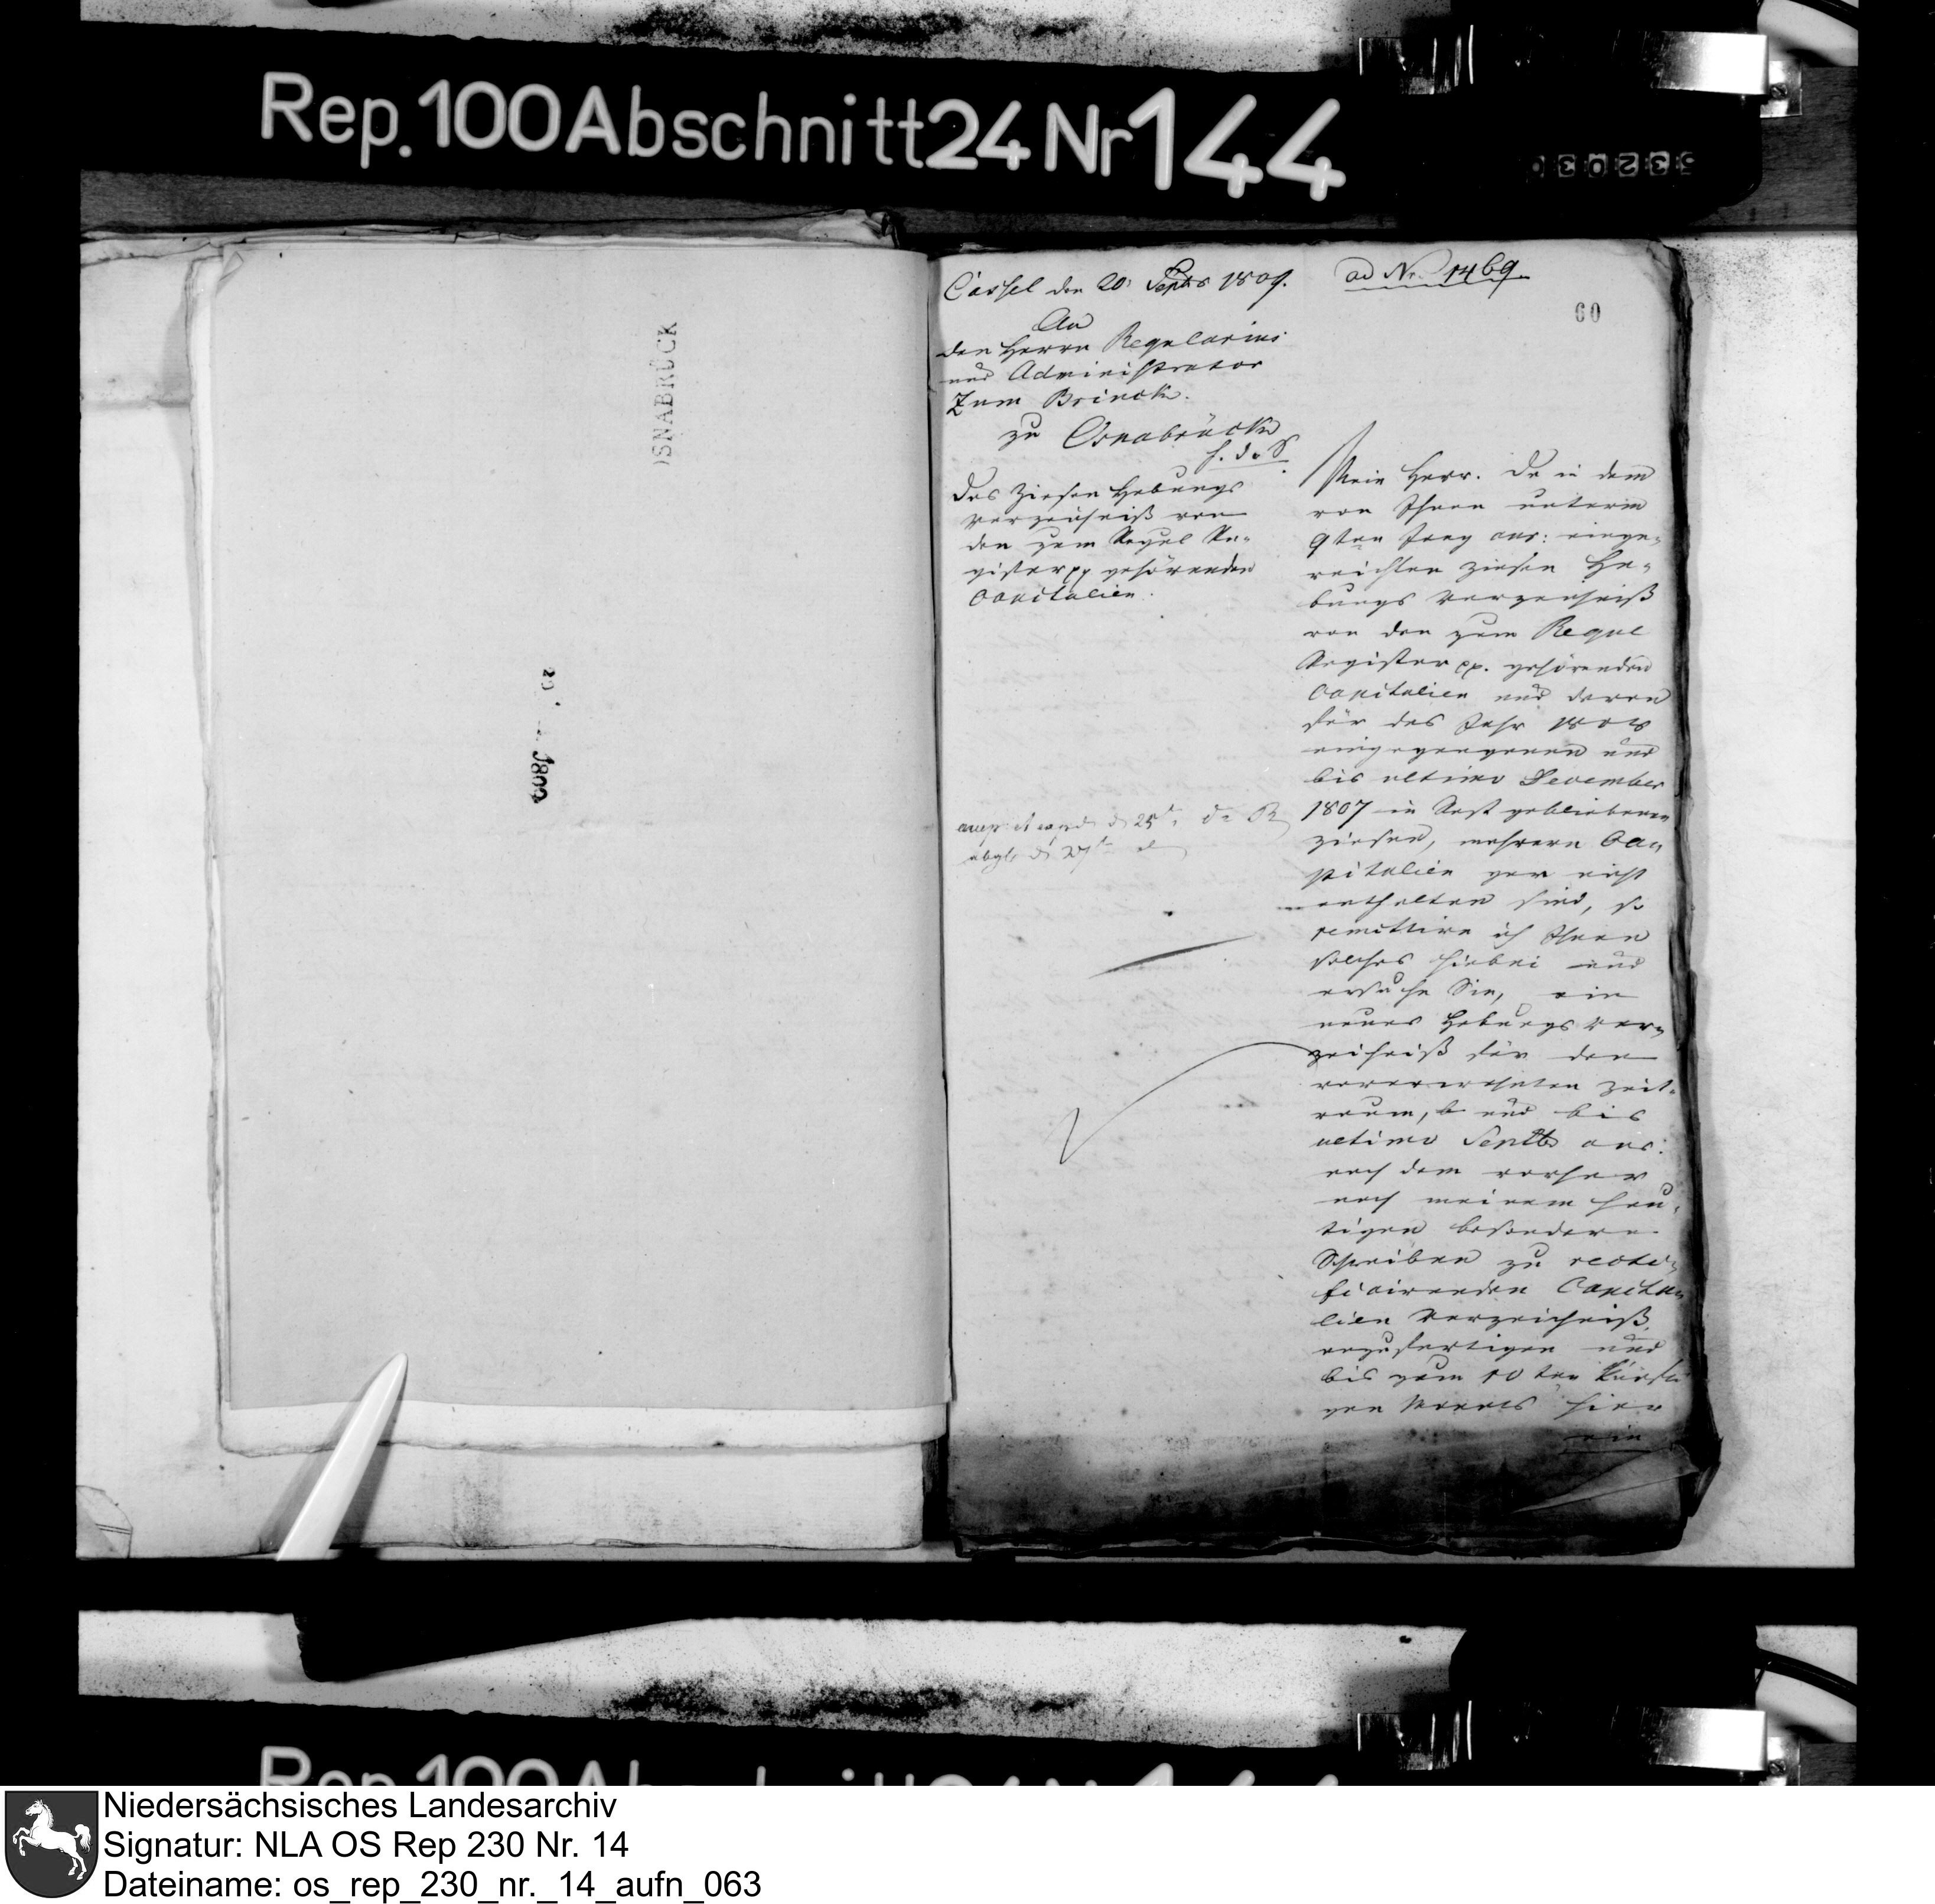 Rep. 100 Abschnitt 24 Nr 144
OSNABRÜCK
1809
Cassel den 20. Septbr 1809.
ad Nr. 1469.
60
An
den Herrn Regularius
und Administrator
Zum Brinck.
zu Osnabrück
Das Zinsen Hebungs
Verzeichniß von
den zum Regul Re-
gister pp gehörenden
Capitalien.
abgeg. d. 27
Mein Herr. Da in dem
von Ihnen unterm
9ten Jung cur: einge-
reichten Zinsen He-
bungs Verzeichniß
von den zum Regul
Register pp. gehörenden
Capitalien und deren
für das Jahr 1808
eingegangenen und
bis ultimo December
1807 in Rest gebliebenen
Zinsen, mehrere Ca-
pitalien gar nicht
enthalten sind, so
remittire ich Ihnen
solches hiebei und
ersuche Sie, ein
neues Hebungs Ver-
zeichniß für den
vorerwehnten Zeit-
raum, und bis
ultimo Septbr cur:
nach dem vorher
nach meinem heu-
tigen besondern
Schreiben zu recti-
ficirenden Capita-
lien Verzeichniß
anzufertigen und
bis zum 10ten künfti
gen Monats hier
ein
Rep. 100 Abschnitt 24 Nr 144
Niedersächsisches Landesarchiv
Signatur: NLA OS Rep 230 Nr. 14
Dateiname: os_rep_230_nr._14_aufn_063